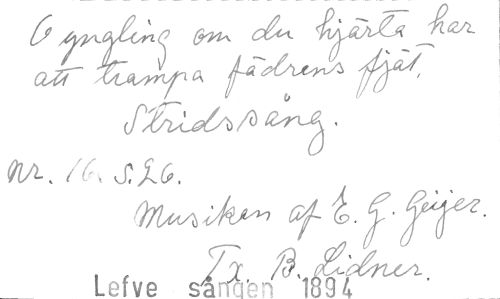 O yngling om du hjärta har
att trampa fädrens fjät,
Stridssång.
Nr. 16. s.26.
Musiken af E. G. Geijer.
Tx. B. Lidner.
Lefve sången 1894